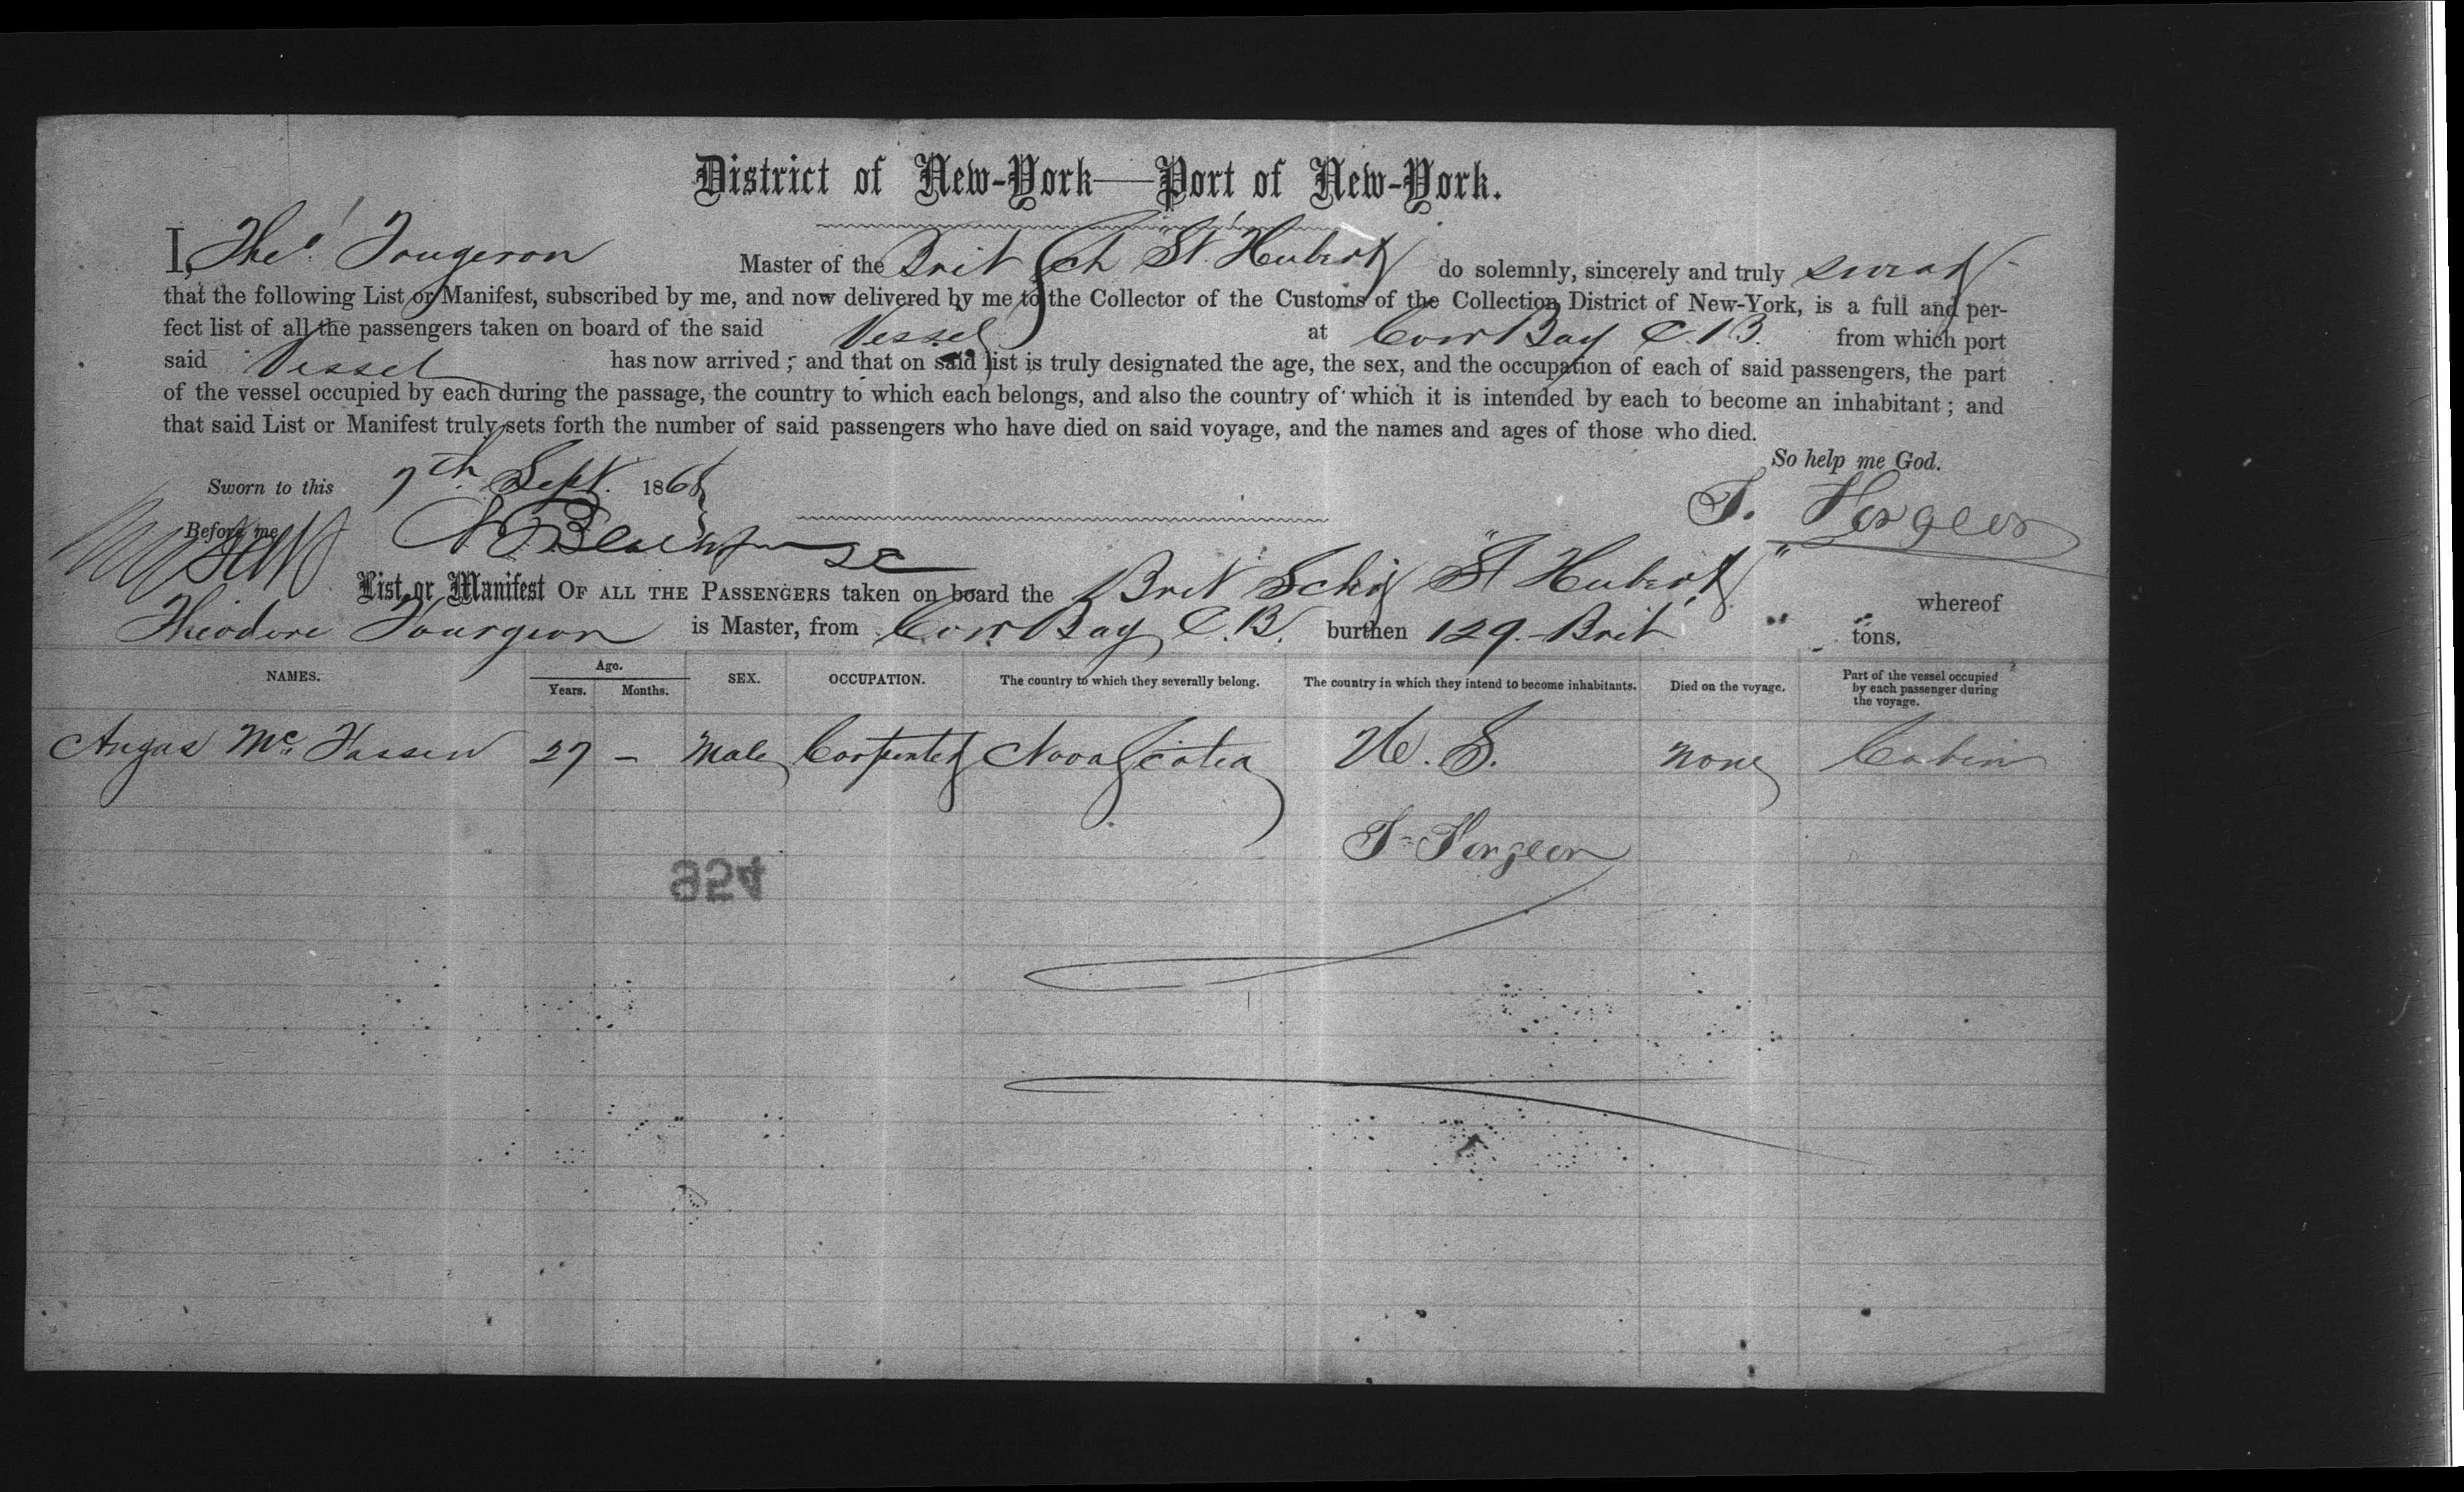 District of New-York—Port of New-York.
I, Theo. Fougeron Master of the Brit Sch St. Hubert do solemnly, sincerely and truly swear
that the following List or Manifest, subscribed by me, and now delivered by me to the Collector of the Customs of the Collection District of New-York, is a full and per-
fect list of all the passengers taken on board of the said Vessel at Cow Bay C.B. from which port
said Vessel has now arrived; and that on said list is truly designated the age, the sex, and the occupation of each of said passengers, the part
of the vessel occupied by each during the passage, the country to which each belongs, and also the country of which it is intended by each to become an inhabitant; and
that said List or Manifest truly sets forth the number of said passengers who have died on said voyage, and the names and ages of those who died.
So help me God.
Sworn to this 7th Sept. 186
Before me
T.
List or Manifest OF ALL THE PASSENGERS taken on board the Brit Schr "St Hubert" whereof
Theodore is Master, from Cow Bay, C.B. burthen 129 - Brit " " tons.
NAMES. Age. SEX. OCCUPATION. The country to which they severally belong. The country in which they intend to become inhabitants. Died on the voyage. Part of the vessel occupied by each passenger during the voyage.
Years. Months.
Angus Mc 27 - Male Carpenter Nova Scotia U. S. None Cabin
T-
954